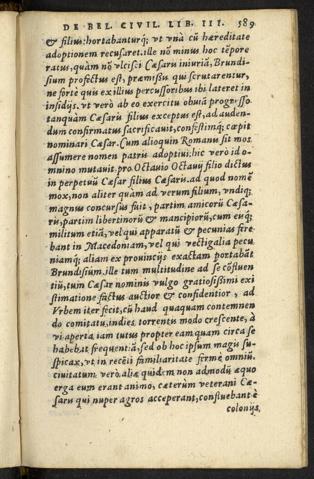 DE BEL. CIVIL. LIB. III. 589
& filius: hortabanturq́; ut unà cũ hæreditate
adoptionem recusaret. ille nõ minus hoc tẽpore
ratus, quàm nõ vlcisci Cæsaris iniuriã, Brundi-
sium profectus est, præmissis qui scrutarentur,
ne fortè quis ex illius percussoribus ibi lateret in
insidijs. ut verò ab eo exercitu obuiã progresso
tanquàm Cæsaris filius exceptus est, ad auden-
dum confirmatus sacrificauit, confestimq́; cœpit
nominari Cæsar. Cum alioquin Romanis sit mos
assumere nomen patris adoptiui: hic verò id o-
mnino mutauit. pro Octauio Octauij filio dictus
in perpetuũ Cæsar filius Cæsaris. ad quod nomẽ
mox, non aliter quàm ad verum filium, vndiq́;
magnus concursus fuit, partim amicorũ Cæsa-
ris, partim libertinorũ & mancipiorũ, cum eisq́;
militum etiã, vel qui apparatũ & pecunias fere-
bant in Macedoniam, vel qui vectigalia pecu
niamq́; aliam ex prouincijs exactam portabãt
Brundisium. ille tum multitudine ad se cõfluen-
tiũ, tum Cæsar nominis vulgo gratiosissimi exi
stimatione factus auctior & confidentior, ad
Vrbem iter fecit, cũ haud quaquam contemnen
do comitatu, indies torrentis modo crescente, à
vi aperta iam tutus propter eam, quam circa se
habebat frequentiã, sed ob hoc ipsum magis su-
spicax, vt in recẽti familiaritate fermè omniũ.
ciuitatum verò. aliæ quidem non admodũ æquo
erga eum erant animo, cæterùm veterani Cæ-
saris qui nuper agros acceperant, confluebant è
colonijs,